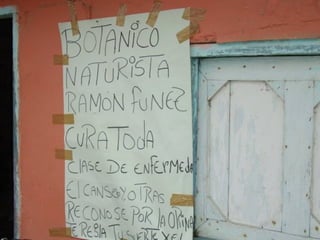 BOTANICO
NATURISTA
RAMON FUNEZ
CURA TODA
CLASE DE ENFERMEDA
El CANSER Y OTRAS
RECONOSE POR LA ORINA
TE REGLA TU SUERTE